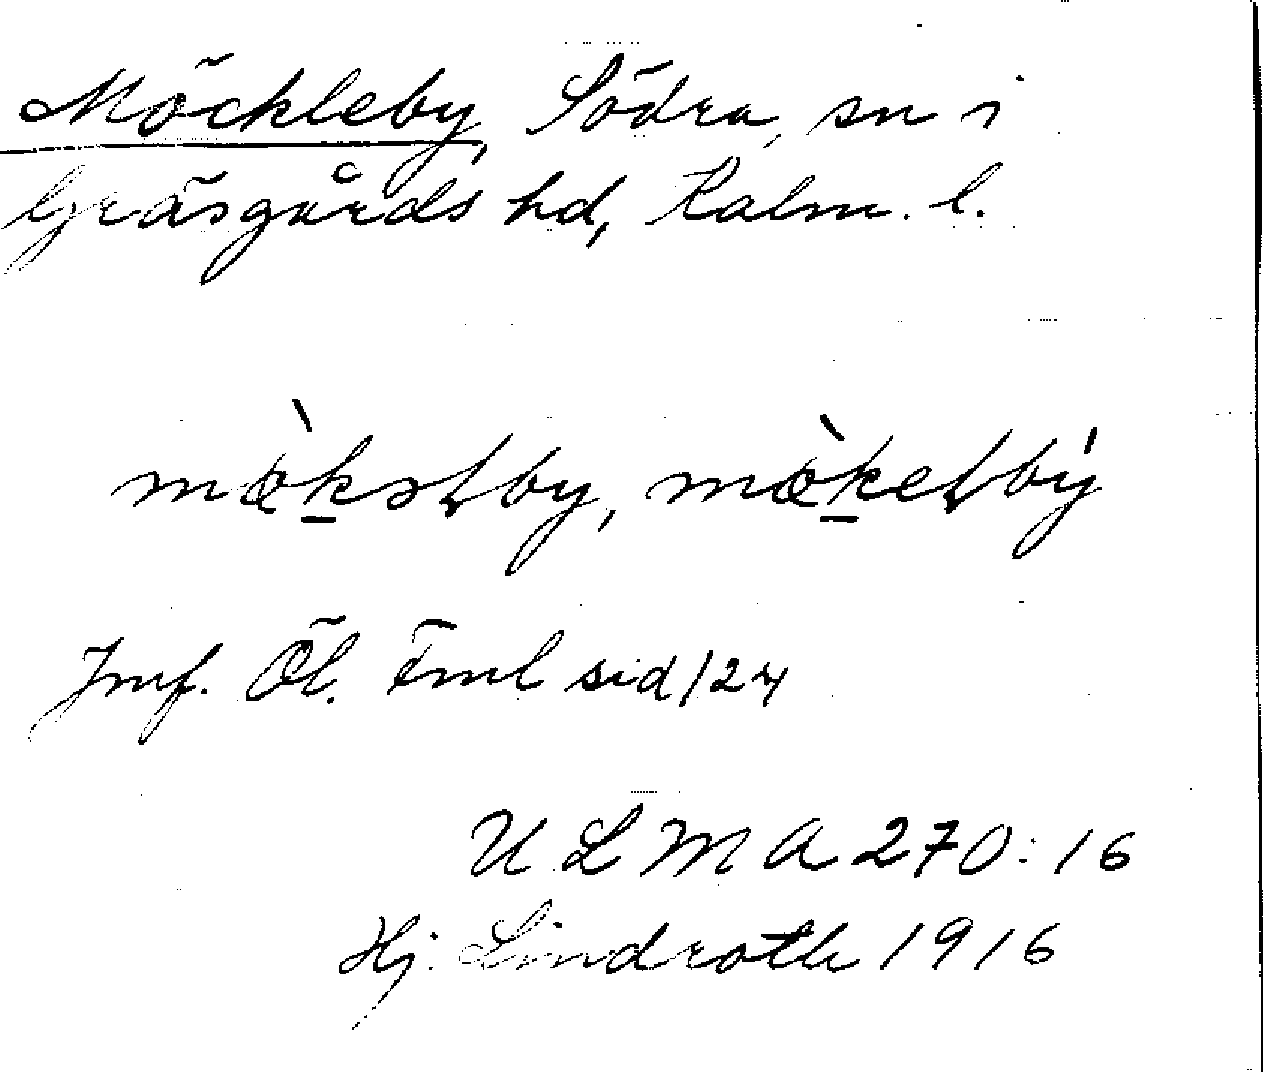 Möckleby, Södra, sn i
Gräsgårds hd, Kalm. l.
mæ̀k̠əɫby, mæ̀k̠eɫbý
Jmf. Öl. Fml sid 124
U L M A 270:16
Hj. Lindroth 1916